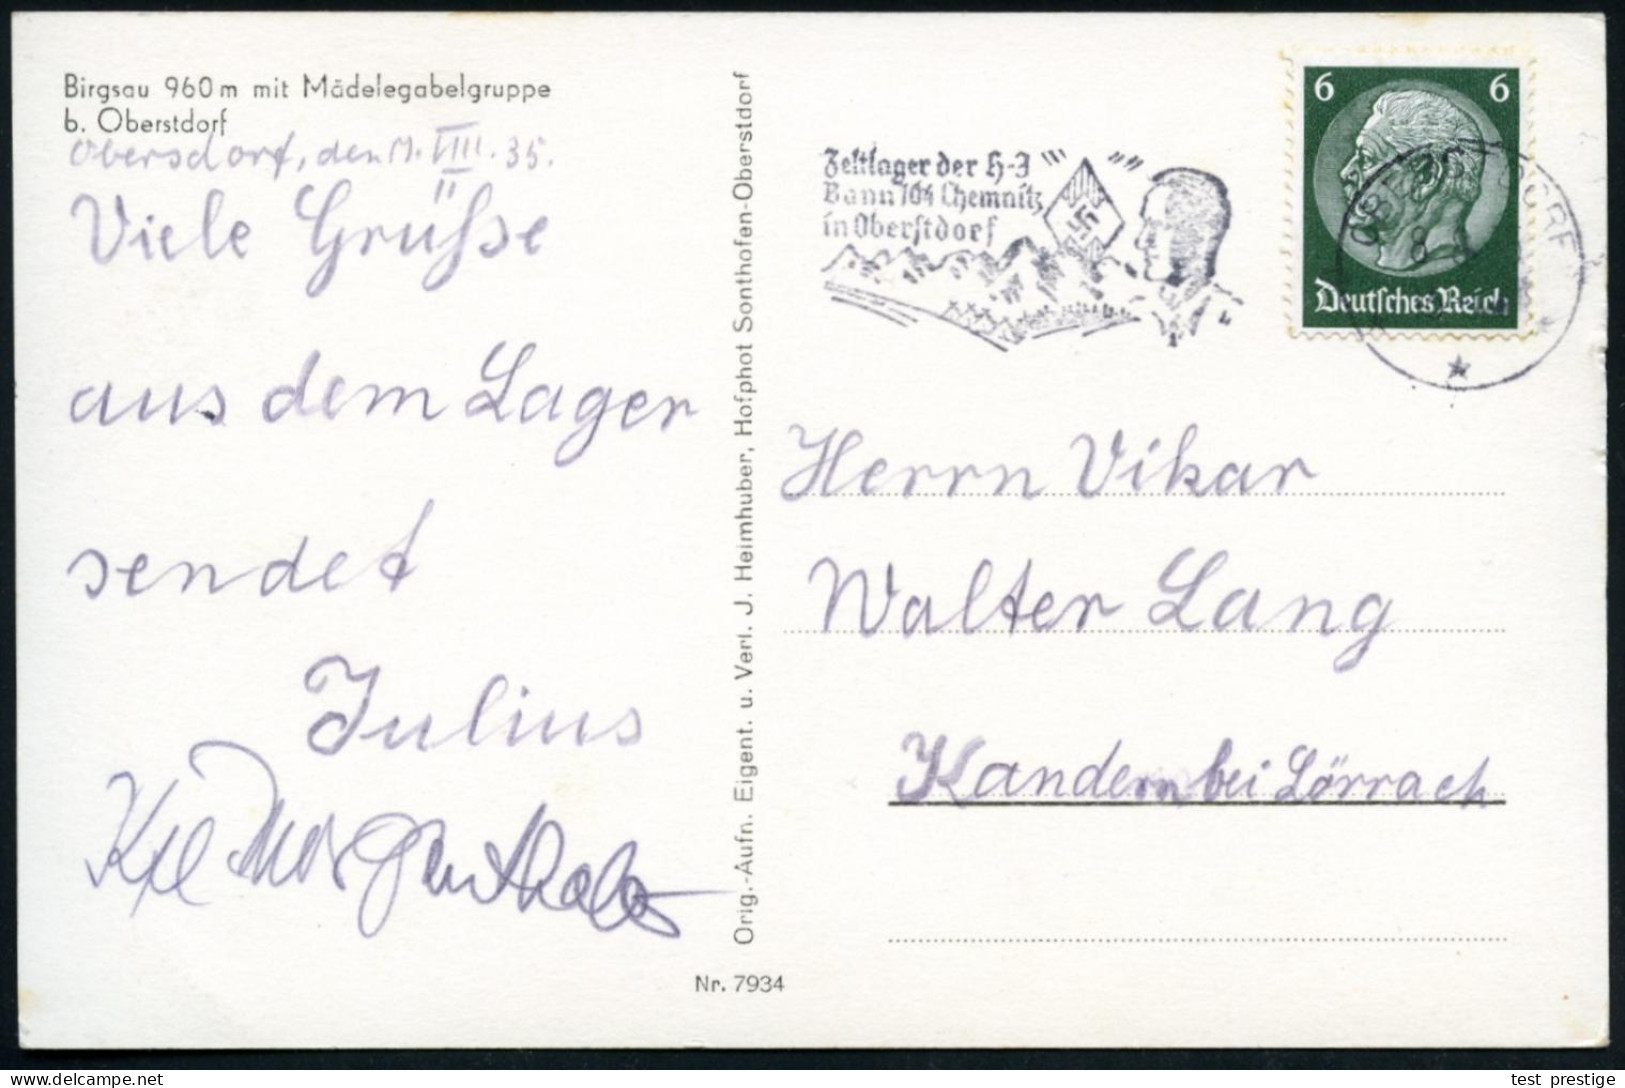 Birgsau 960 m mit Mädelegabelgruppe
b. Oberstdorf
Obersdorf, den VIII. 35.
Viele Grüße
aus dem Lager
sendet
Julius
Nr. 7934
Orig.-Aufn. Eigent. u. Verl. J. Heimhuber, Hofphot Sonthofen-Oberstdorf
Zeltlager der H-J
Bann 104 Chemnitz
in Oberstdorf
6 6
Deutsches Reich
Herrn Vikar
Walter Lang
Kandern bei Lörrach
delcampe.net
test_prestige